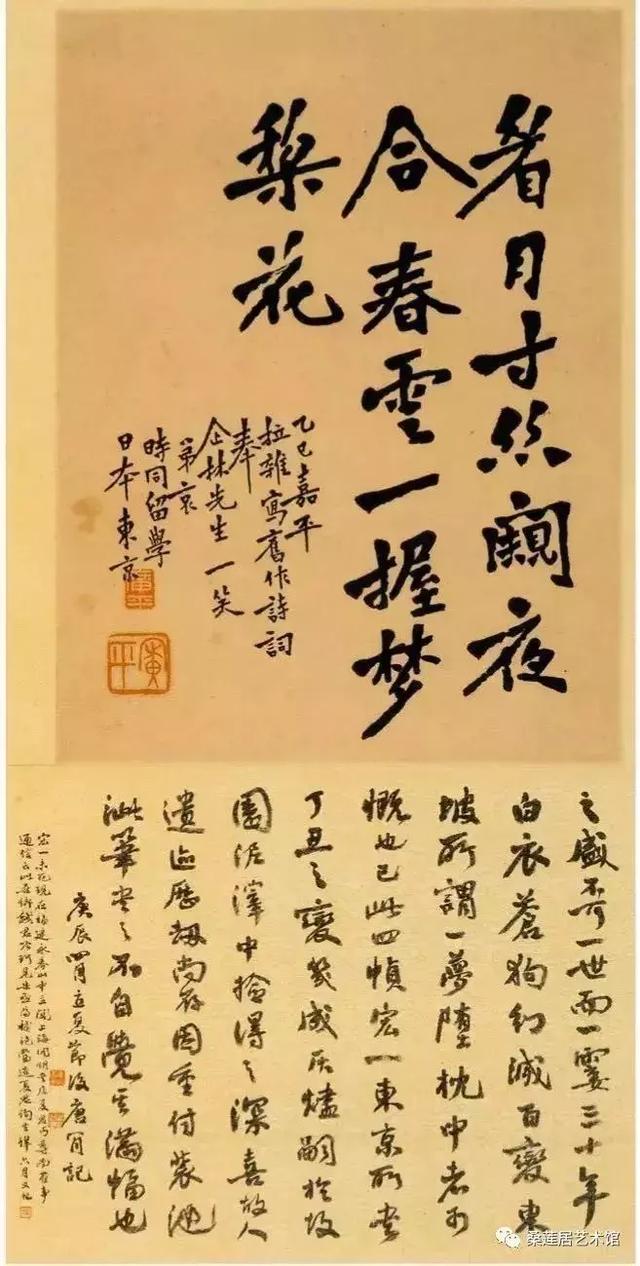 月寸絲闚夜
合春雲一握夢
棃花
乙巳嘉平
拉雜寫舊作詩詞
奉
企林先生一笑
弟哀
時同留學
日本東京
之盛奇一世而一霎三十年
白衣蒼狗幻滅百變東
坡所謂一夢墮枕中者可
慨也已此四幀宏一東京所書
丁丑之變幾成灰燼嗣於故
園泥澤中撿得之深喜故人
遺迹歷劫尚存因重付裝池
泚筆書之不自覺其滿幅也
庚辰四月立夏節後唐肎記
桑莲居艺术馆